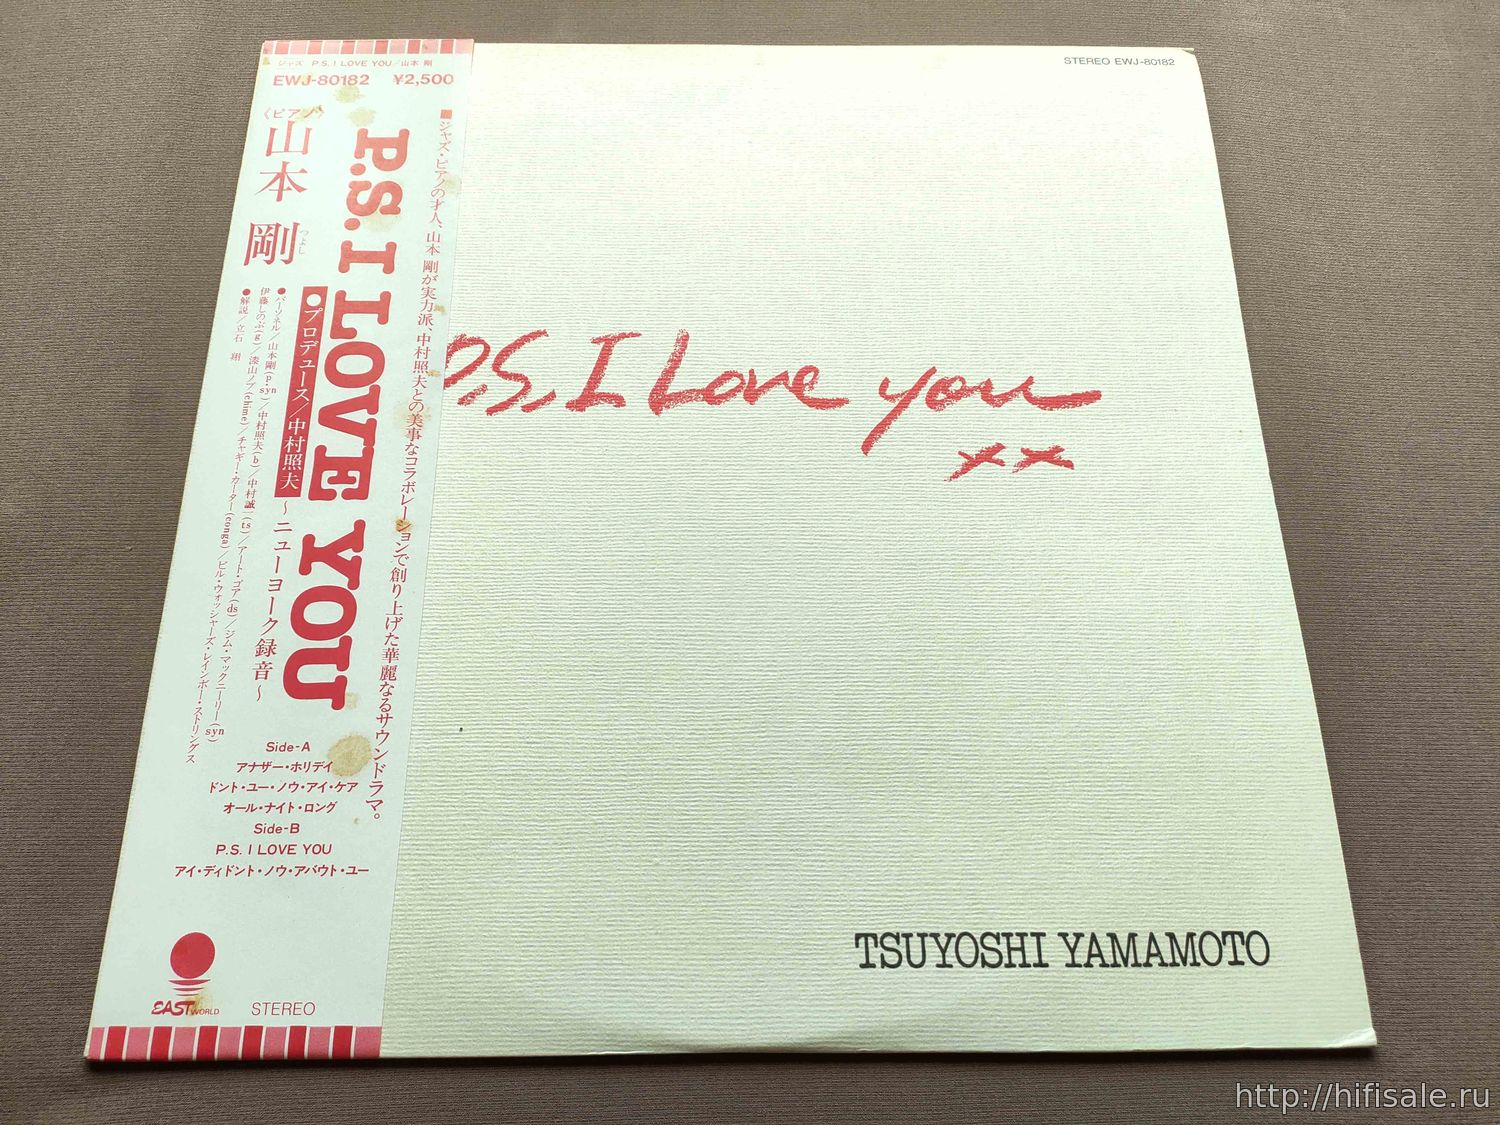 ジャズ P.S. I LOVE YOU／山本 剛
EWJ-80182 ¥2,500
STEREO EWJ-80182
■ジャズ・ピアノの才人、山本 剛が実力派、中村照夫との美事なコラボレーションで創り上げた華麗なるサウンドラマ。
P.S. I LOVE YOU
〈ピアノ〉
山本 剛
つよし
●プロデュース／中村照夫
～ニューヨーク録音～
●パーソネル／山本剛(p・syn)／中村照夫(b)／中村誠一(ts)／アート・ゴア(ds)／ジム・マックニーリー(syn)
伊藤しのぶ(g)／漆山ノブ(chime)／チャギー・カーター(conga)／ビル・ウォッシャーズ・レインボー・ストリングス
●解説／立石 翔
Side-A
アナザー・ホリデイ
ドント・ユー・ノウ・アイ・ケア
オール・ナイト・ロング
Side-B
P.S. I LOVE YOU
アイ・ディドント・ノウ・アバウト・ユー
EAST WORLD
STEREO
P.S. I Love you
xx
TSUYOSHI YAMAMOTO
http://hifisale.ru